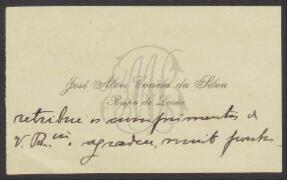 José Alves Correia da Silva
Bispo de Leiria
retribue os cumprimentos de
V. Rev.cia. agradece, muit